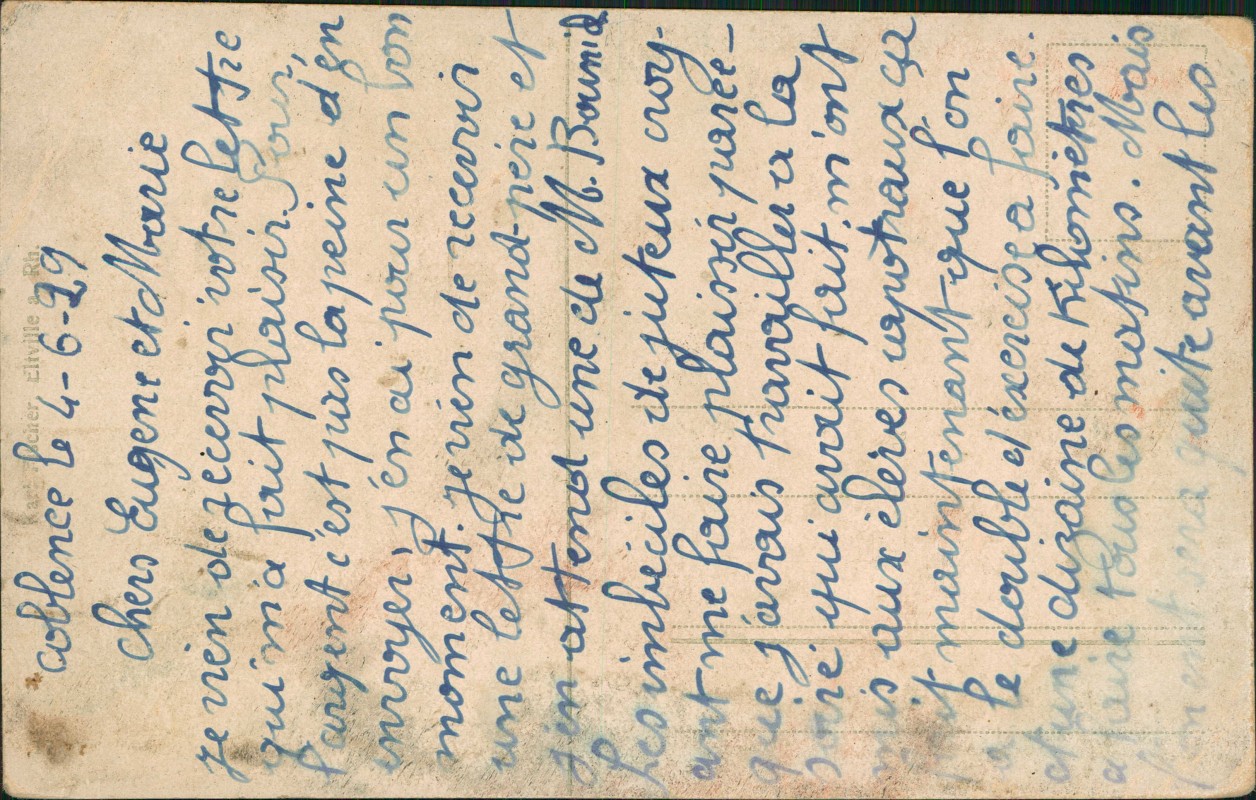 Coblence le 4-6-29
Chers Eugène et Marie
je vien de recevoir votre lettre
qui m'a fait plaisir. Pour
l'argent c'est pas la peine d'én
envoyer j'én ai pour un bon
moment. je vien de recevoir
une lettre de grand-père et
j'en attend une de M. Bournid
Les imbéciles de juteux croy-
ant me faire plaisir parce-
que j'avais travailler a la
qui avait fait m'ont
mis aux élèves capotraux ça
fait maintenant que l'on
a le double d'éxercise a faire.
et une dizaine de Kilomètres
a faire tous les matins. Mais
j'en serai quitte avant les
Karl Eltville a. Rh.